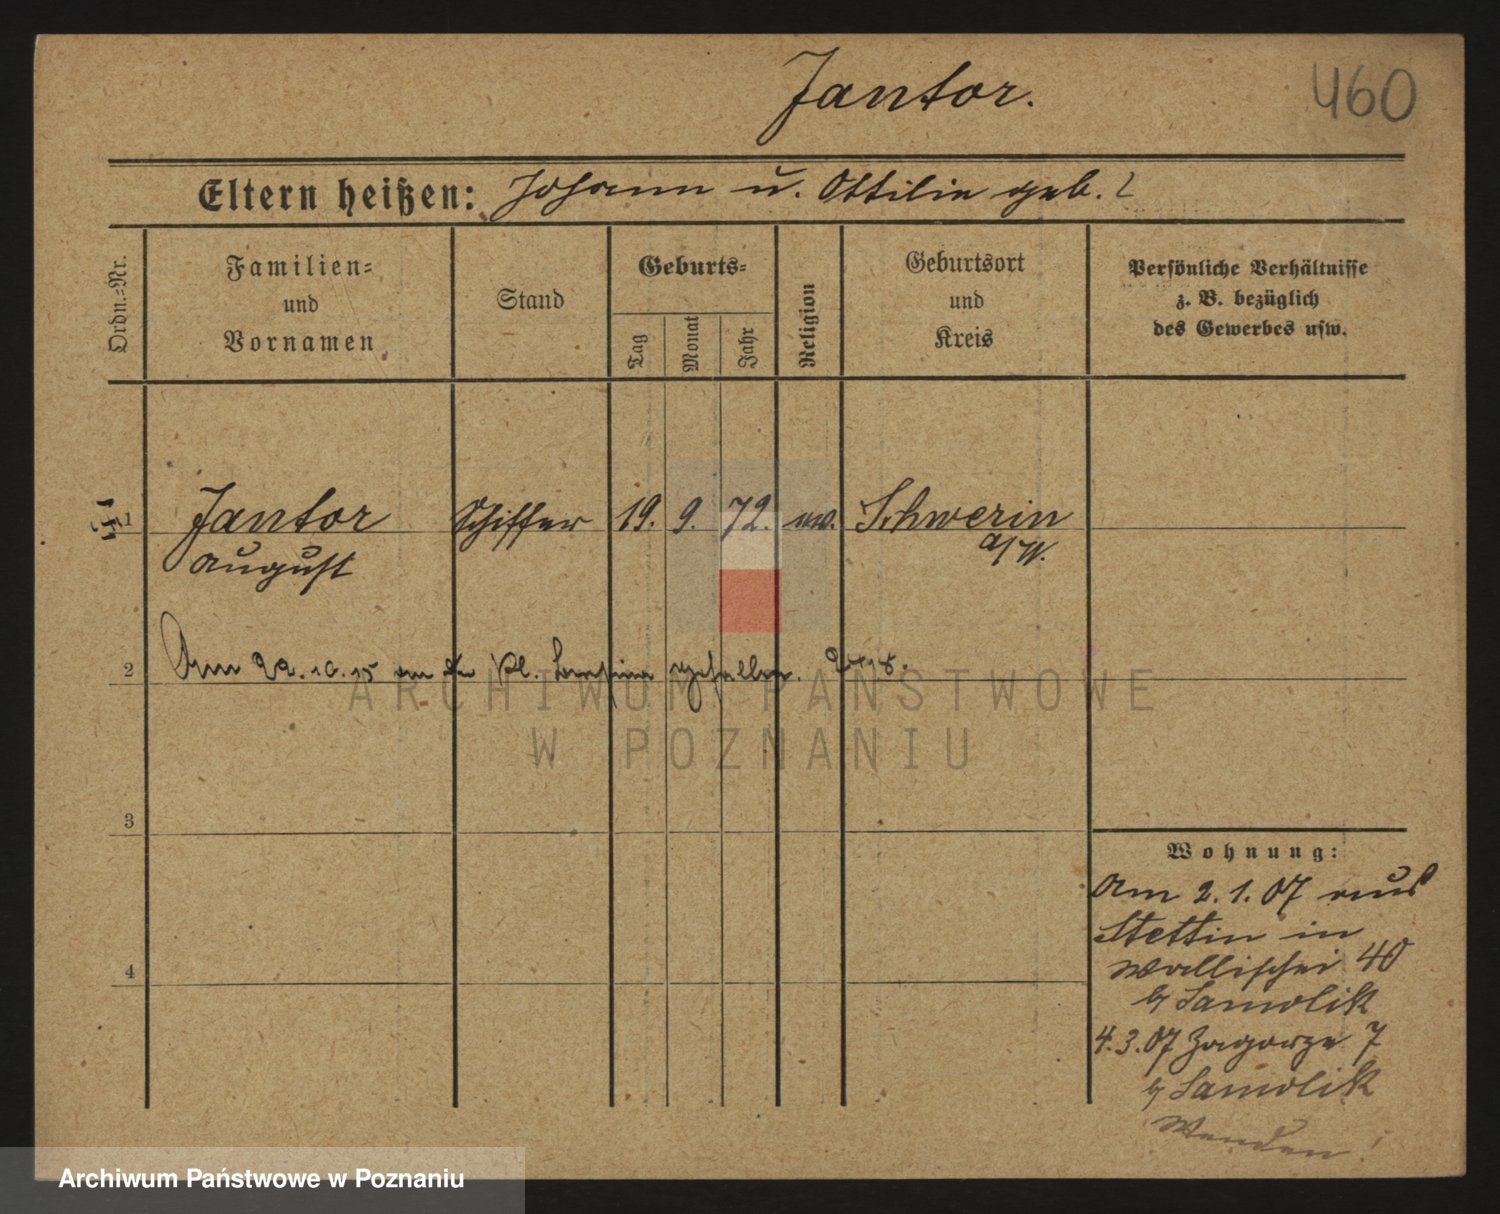 Jantor.
460
Eltern heißen: Johann u. Ottilie geb. ?
Ordn.-Nr.
Familien-
und
Vornamen
Stand
Geburts-
Tag
Monat
Jahr
Religion
Geburtsort
und
Kreis
Persönliche Verhältnisse
z. B. bezüglich
des Gewerbes usw.
1 Jantor Schiffer 19. 9. 72. ev. Schwerin
August a/W.
2 Am 22.10.15 an der gefallen.
ARCHIWUM PAŃSTWOWE
W POZNANIU
3
4
Wohnung:
Am 2.1.07 aus
Stettin in
Wallischei 40
b/ Samolik
4.3.07 Zagorze 7
b/ Samolik
Wenden
Archiwum Państwowe w Poznaniu